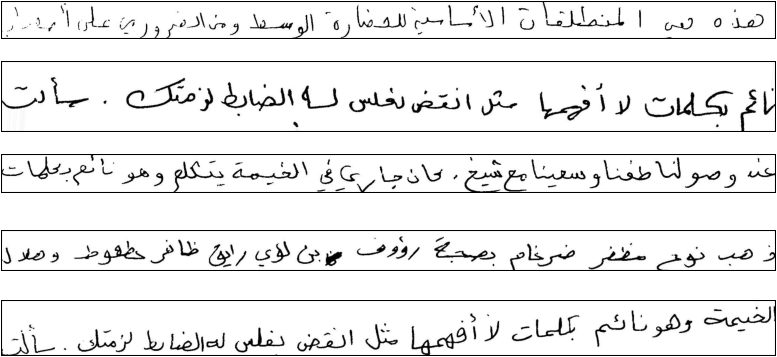 هذه هي المنطلقات الأساسية للحضارة الوسط ومن الضروري على أن
نائم بكلمات لا أفهمها مثل انقض نفلس له الضابط لزمتك . سألت
عند وصولنا طفنا وسعينا مع شيخ . كان جاري في الخيمة يتكلم وهو نائم بكلمات
ذهب نوح مظفر ضرغام بصحبة رؤوف بن لؤي رايق ظافر طعوط وهلال
الخيمة وهو نائم بكلمات لا أفهمها مثل انقض نفلس له الضابط لزمتك . سألت